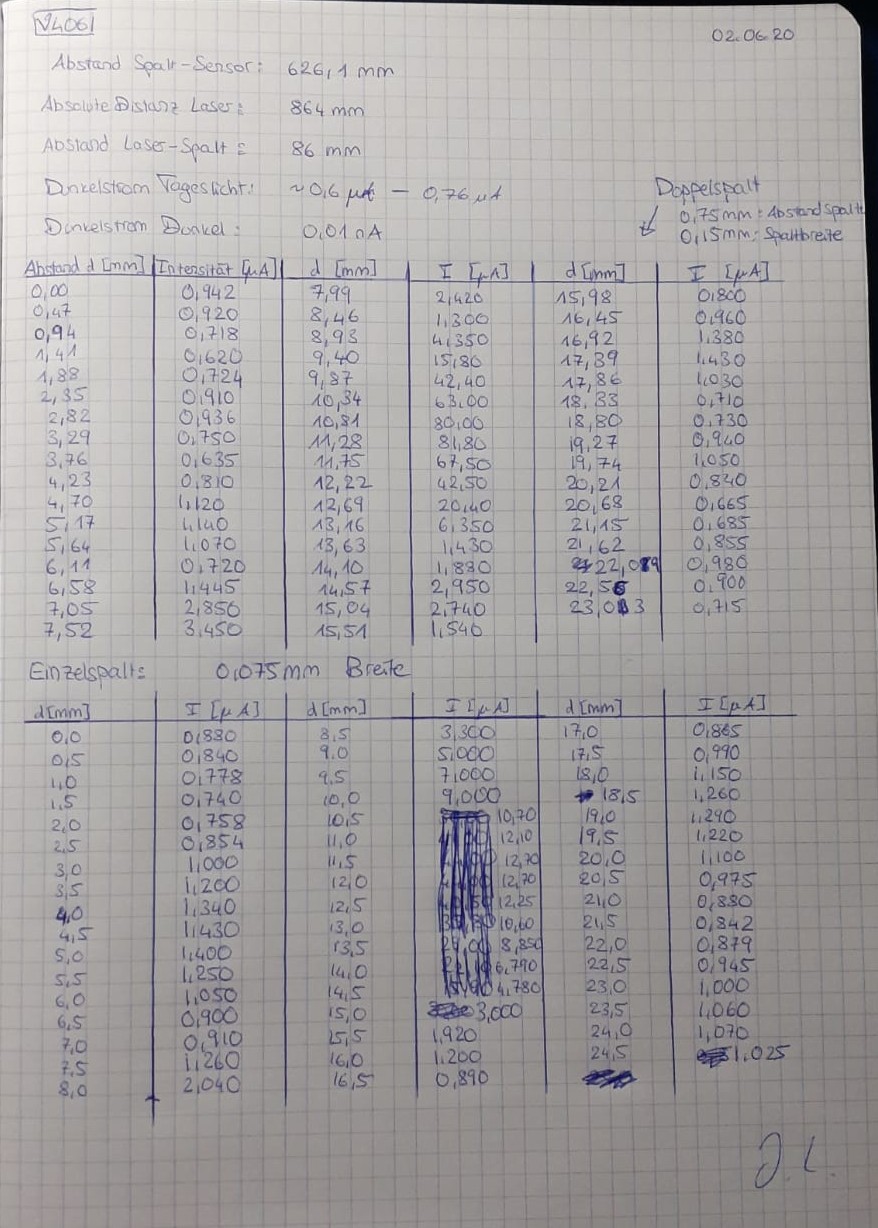 V406
02.06.20
Abstand Spalt-Sensor: 626,1 mm
Absolute Distanz Laser: 864 mm
Abstand Laser-Spalt: 86 mm
Dunkelstrom Tageslicht: ~0,6 µA - 0,76 µA
Doppelspalt
0,75mm: Abstand Spalt
Dunkelstrom Dunkel: 0,01 nA
0,15mm: Spaltbreite
Abstand d [mm] Intensität [µA] d [mm] I [µA] d [mm] I [µA]
0,00 0,942 7,99 2,420 15,98 0,800
0,47 0,920 8,46 1,300 16,45 0,960
0,94 0,718 8,93 4,350 16,92 1,380
1,41 0,620 9,40 15,80 17,39 1,430
1,88 0,724 9,87 42,40 17,86 1,030
2,35 0,910 10,34 63,00 18,33 0,710
2,82 0,936 10,81 80,00 18,80 0,730
3,29 0,750 11,28 81,80 19,27 0,940
3,76 0,635 11,75 67,50 19,74 1,050
4,23 0,810 12,22 42,50 20,21 0,840
4,70 1,120 12,69 20,40 20,68 0,665
5,17 1,140 13,16 6,350 21,15 0,685
5,64 1,070 13,63 1,430 21,62 0,855
6,11 0,720 14,10 1,880 22,09 0,980
6,58 1,445 14,57 2,950 22,56 0,900
7,05 2,850 15,04 2,740 23,03 0,715
7,52 3,450 15,51 1,540
Einzelspalt: 0,075mm Breite
d [mm] I [µA] d [mm] I [µA] d [mm] I [µA]
0,0 0,880 8,5 3,300 17,0 0,865
0,5 0,840 9,0 5,000 17,5 0,990
1,0 0,778 9,5 7,000 18,0 1,150
1,5 0,740 10,0 9,000 18,5 1,260
2,0 0,758 10,5 10,70 19,0 1,290
2,5 0,854 11,0 12,10 19,5 1,220
3,0 1,000 11,5 12,70 20,0 1,100
3,5 1,200 12,0 12,70 20,5 0,975
4,0 1,340 12,5 12,25 21,0 0,880
4,5 1,430 13,0 10,60 21,5 0,842
5,0 1,400 13,5 8,850 22,0 0,879
5,5 1,250 14,0 6,790 22,5 0,945
6,0 1,050 14,5 4,780 23,0 1,000
6,5 0,900 15,0 3,000 23,5 1,060
7,0 0,910 15,5 1,920 24,0 1,070
7,5 1,260 16,0 1,200 24,5 1,025
8,0 2,040 16,5 0,890